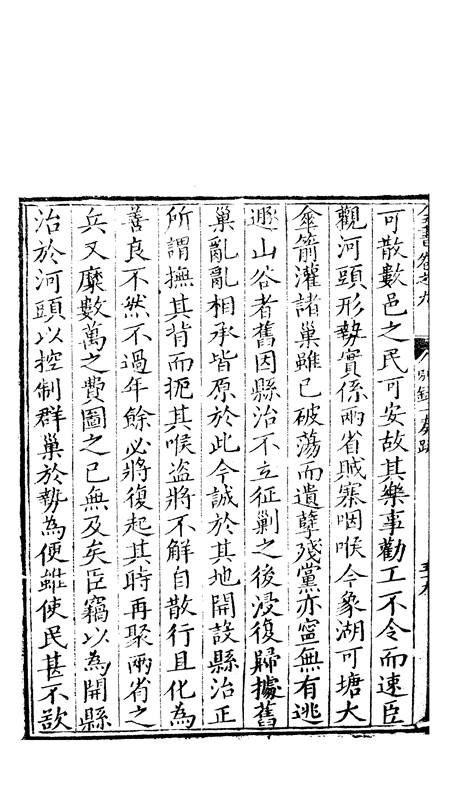 全書卷之九　別錄一　奏疏　五十九
可散數邑之民可安故其樂事勸工不令而速臣
觀河頭形勢實係兩省賊寨咽喉今象湖可塘大
傘箭灌諸巢雖已破蕩而遺孽殘黨亦寧無有逃
遯山谷者舊因縣治不立征剿之後浸復歸據舊
巢亂亂相承皆原於此今誠於其地開設縣治正
所謂撫其背而扼其喉盜將不解自散行且化為
善良不然不過年餘必將復起其時再聚兩省之
兵又糜數萬之費圖之已無及矣臣竊以為開縣
治於河頭以控制群巢於勢為便雖使民甚不欲